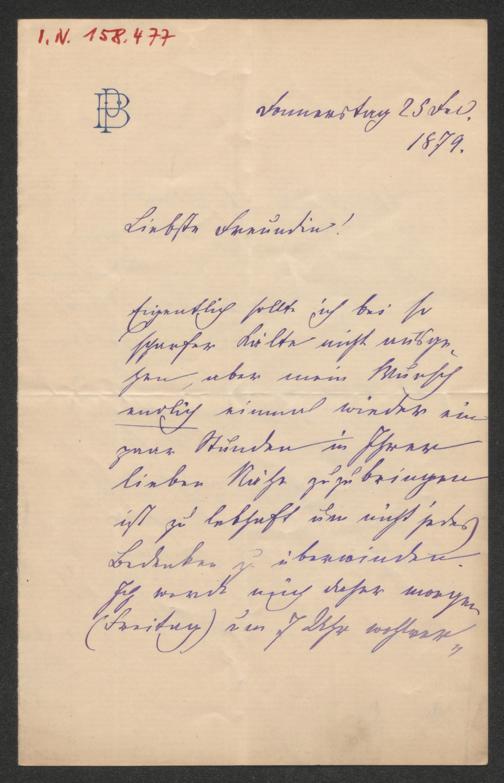 I.N. 158.477
PB
Donnerstag 25 Dec.
1879.
Liebste Freundin!
Eigentlich sollte ich bei so
scharfer Kälte nicht ausge„
hen, aber mein Wunsch
endlich einmal wieder ein
paar Stunden in Ihrer
lieben Nähe zuzubringen
ist zu lebhaft um nicht jedes
Bedenken zu überwinden.
Ich werde mich daher morgen
(Freitag) um 7 Uhr wohlver„